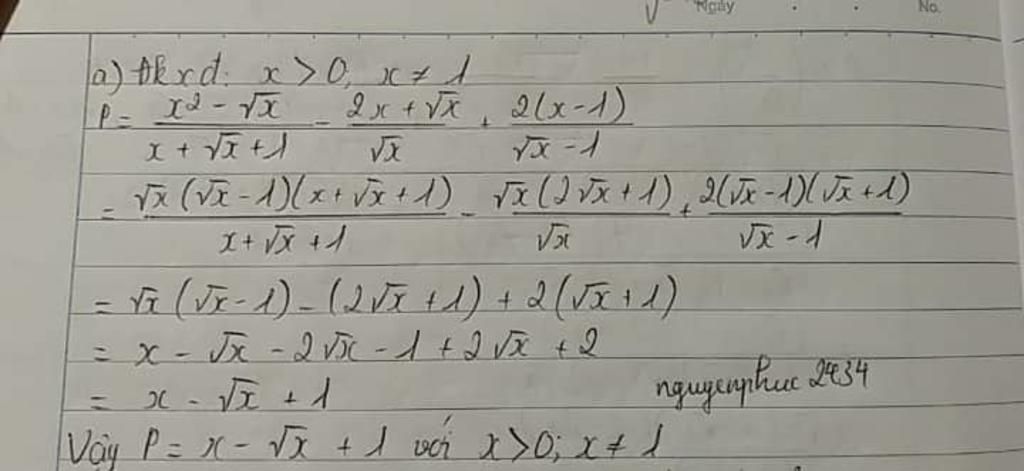 Ngày . . No.
a) đkxđ: x > 0; x ≠ 1
P = (x² - √x)/(x + √x + 1) - (2x + √x)/√x + (2(x - 1))/(√x - 1)
= (√x(√x - 1)(x + √x + 1))/(x + √x + 1) - (√x(2√x + 1))/√x + (2(√x - 1)(√x + 1))/(√x - 1)
= √x(√x - 1) - (2√x + 1) + 2(√x + 1)
= x - √x - 2√x - 1 + 2√x + 2
= x - √x + 1
nguyenphuc 2434
Vậy P = x - √x + 1 với x > 0; x ≠ 1